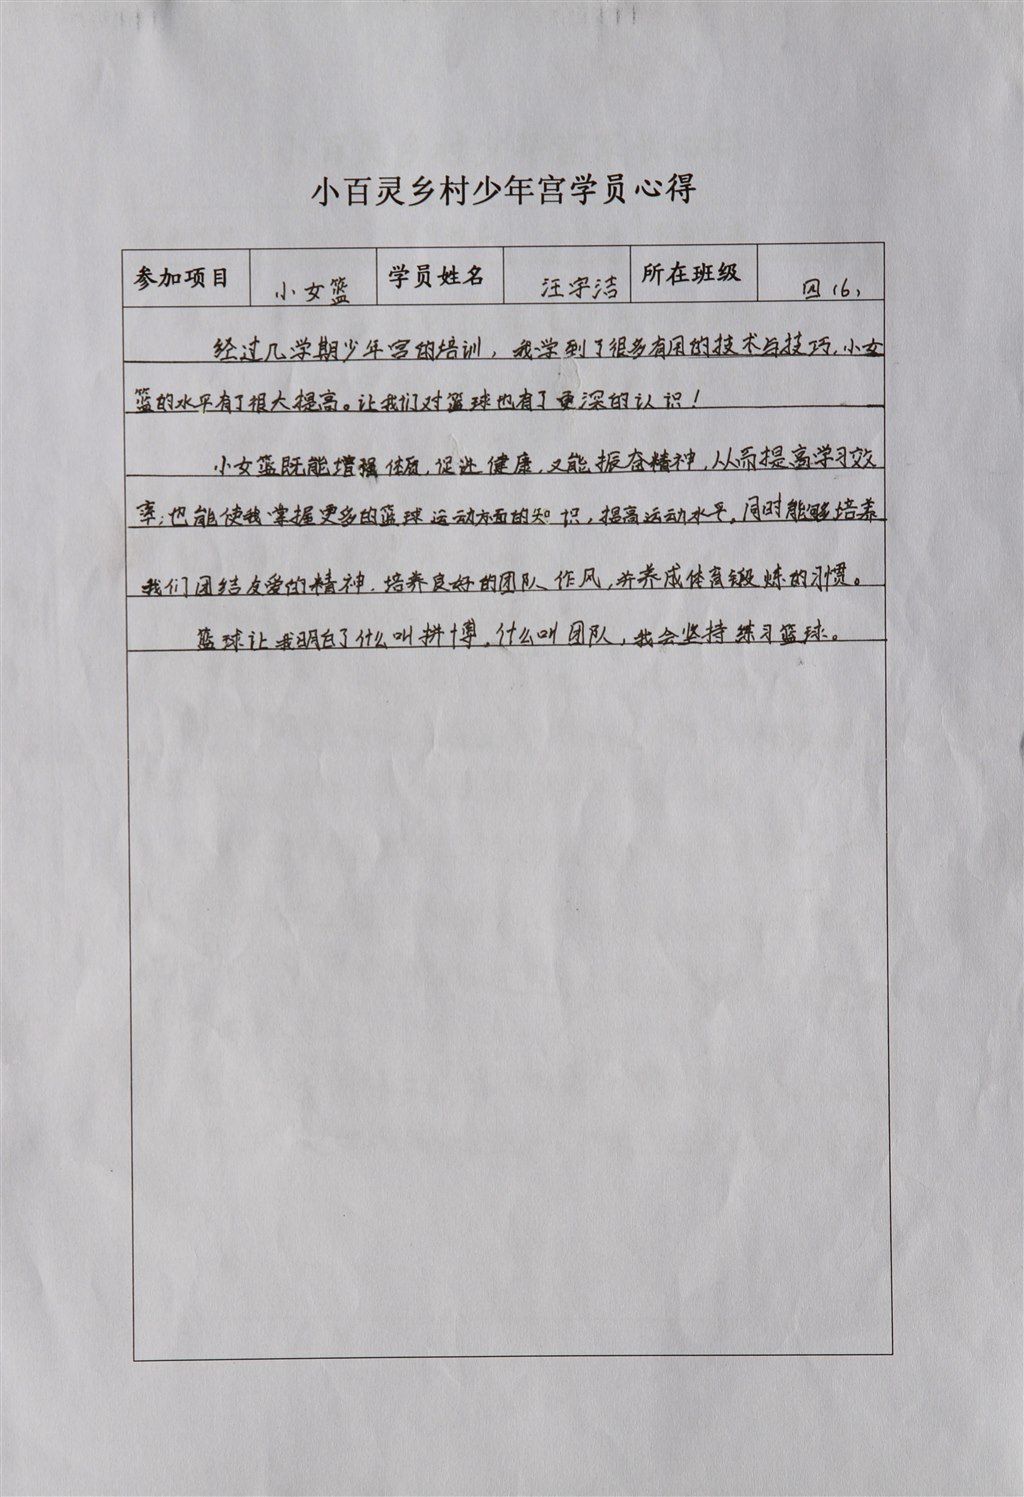 小百灵乡村少年宫学员心得
参加项目 小女篮 学员姓名 汪宇洁 所在班级 四(6)
经过几学期少年宫的培训，我学到了很多有用的技术与技巧，小女
篮的水平有了很大提高。让我们对篮球也有了更深的认识！
小女篮既能增强体质，促进健康，又能振奋精神，从而提高学习效
率；也能使我掌握更多的篮球运动方面的知识，提高运动水平。同时能够培养
我们团结友爱的精神，培养良好的团队作风，并养成体育锻炼的习惯。
篮球让我明白了什么叫拼博，什么叫团队，我会坚持练习篮球。